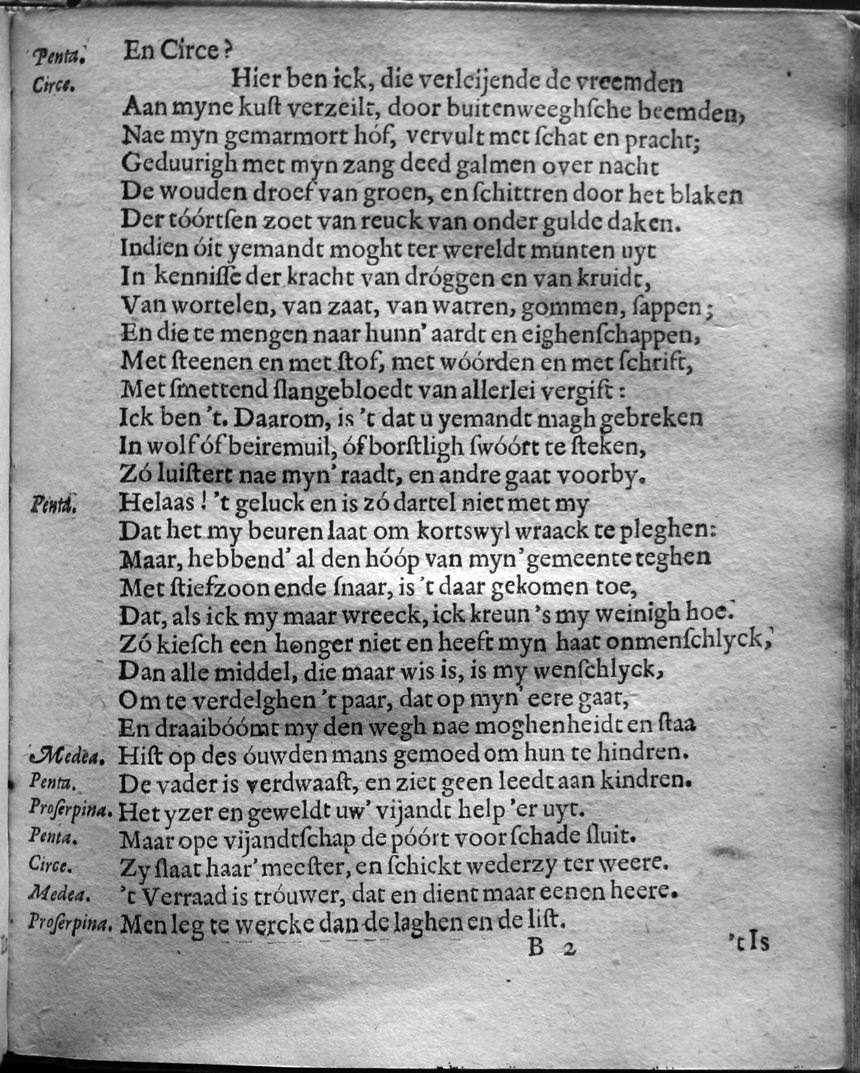 Penta. En Circe?
Circe. Hier ben ick, die verleijende de vreemden
Aan myne kuſt verzeilt, door buitenweeghſche beemden,
Nae myn gemarmort hóf, vervult met ſchat en pracht;
Geduurigh met myn zang deed galmen over nacht
De wouden droef van groen, en ſchittren door het blaken
Der tóórtſen zoet van reuck van onder gulde daken.
Indien óit yemandt moght ter wereldt munten uyt
In kenniſſe der kracht van dróggen en van kruidt,
Van wortelen, van zaat, van watren, gommen, ſappen;
En die te mengen naar hunn' aardt en eighenſchappen,
Met ſteenen en met ſtof, met wóórden en met ſchrift,
Met ſmettend ſlangebloedt van allerlei vergift:
Ick ben 't. Daarom, is 't dat u yemandt magh gebreken
In wolf óf beiremuil, óf borſtligh ſwóórt te ſteken,
Zó luiſtert nae myn' raadt, en andre gaat voorby.
Penta. Helaas! 't geluck en is zó dartel niet met my
Dat het my beuren laat om kortswyl wraack te pleghen:
Maar, hebbend' al den hóóp van myn' gemeente teghen
Met ſtiefzoon ende ſnaar, is 't daar gekomen toe,
Dat, als ick my maar wreeck, ick kreun 's my weinigh hoe.
Zó kieſch een honger niet en heeft myn haat onmenſchlyck,
Dan alle middel, die maar wis is, is my wenſchlyck,
Om te verdelghen 't paar, dat op myn' eere gaat,
En draaibóómt my den wegh nae moghenheidt en ſtaa
Medea. Hiſt op des óuwden mans gemoed om hun te hindren.
Penta. De vader is verdwaaſt, en ziet geen leedt aan kindren.
Proſerpina. Het yzer en geweldt uw' vijandt help 'er uyt.
Penta. Maar ope vijandtſchap de póórt voor ſchade ſluit.
Circe. Zy ſlaat haar' meeſter, en ſchickt wederzy ter weere.
Medea. 't Verraad is tróuwer, dat en dient maar eenen heere.
Proſerpina. Men leg te wercke dan de laghen en de liſt.
B 2 'tIs